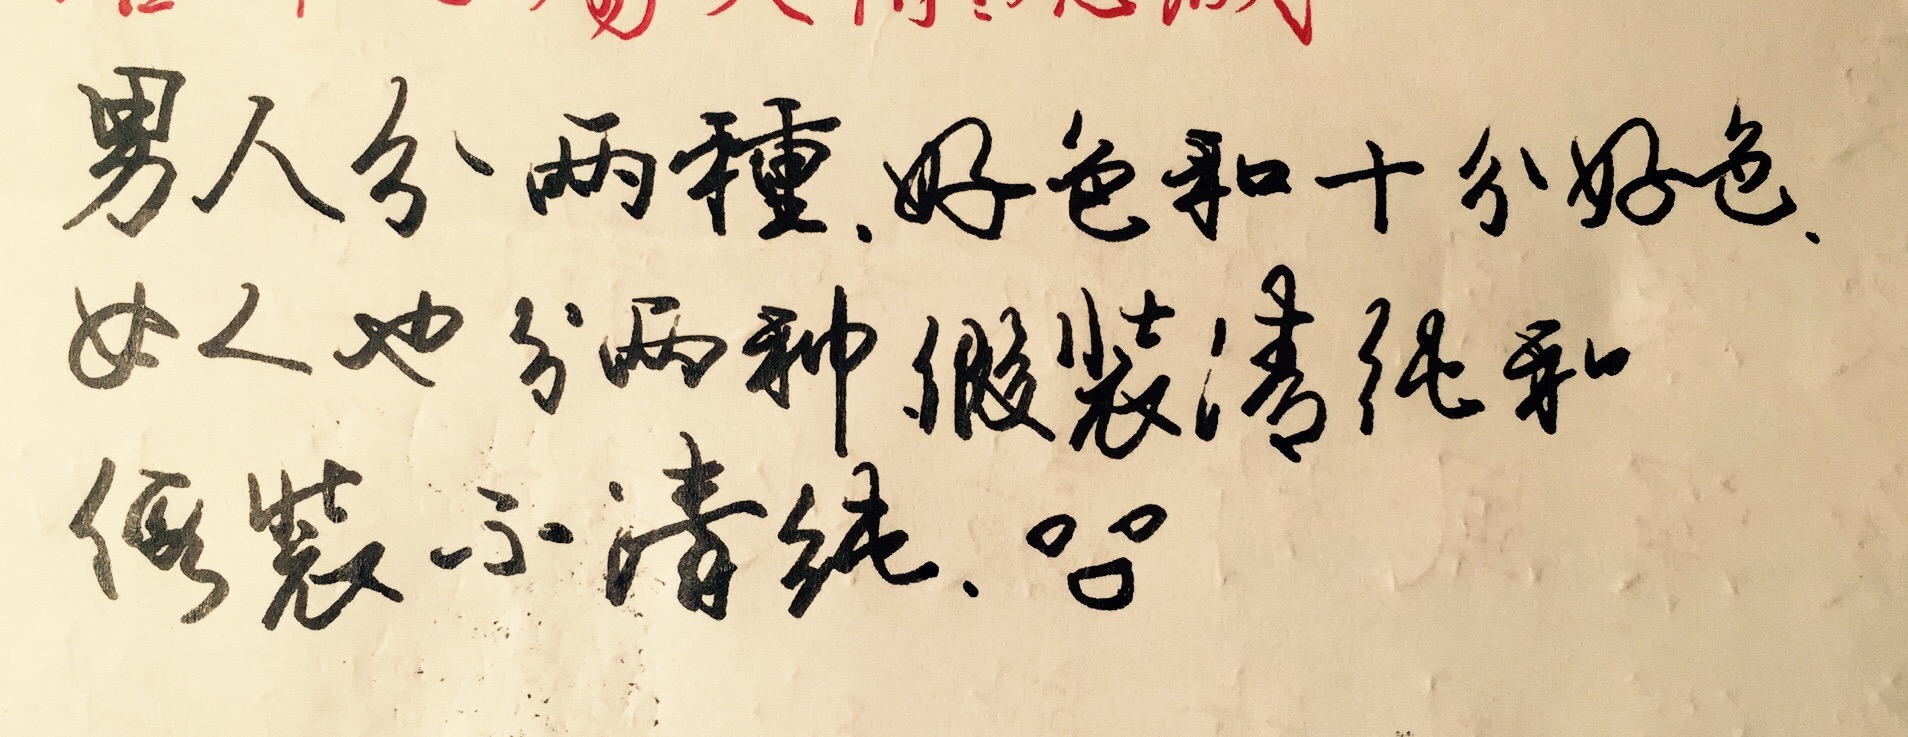 男人分两種.好色和十分好色.
女人也分两种.假装清纯和
假装不清纯.